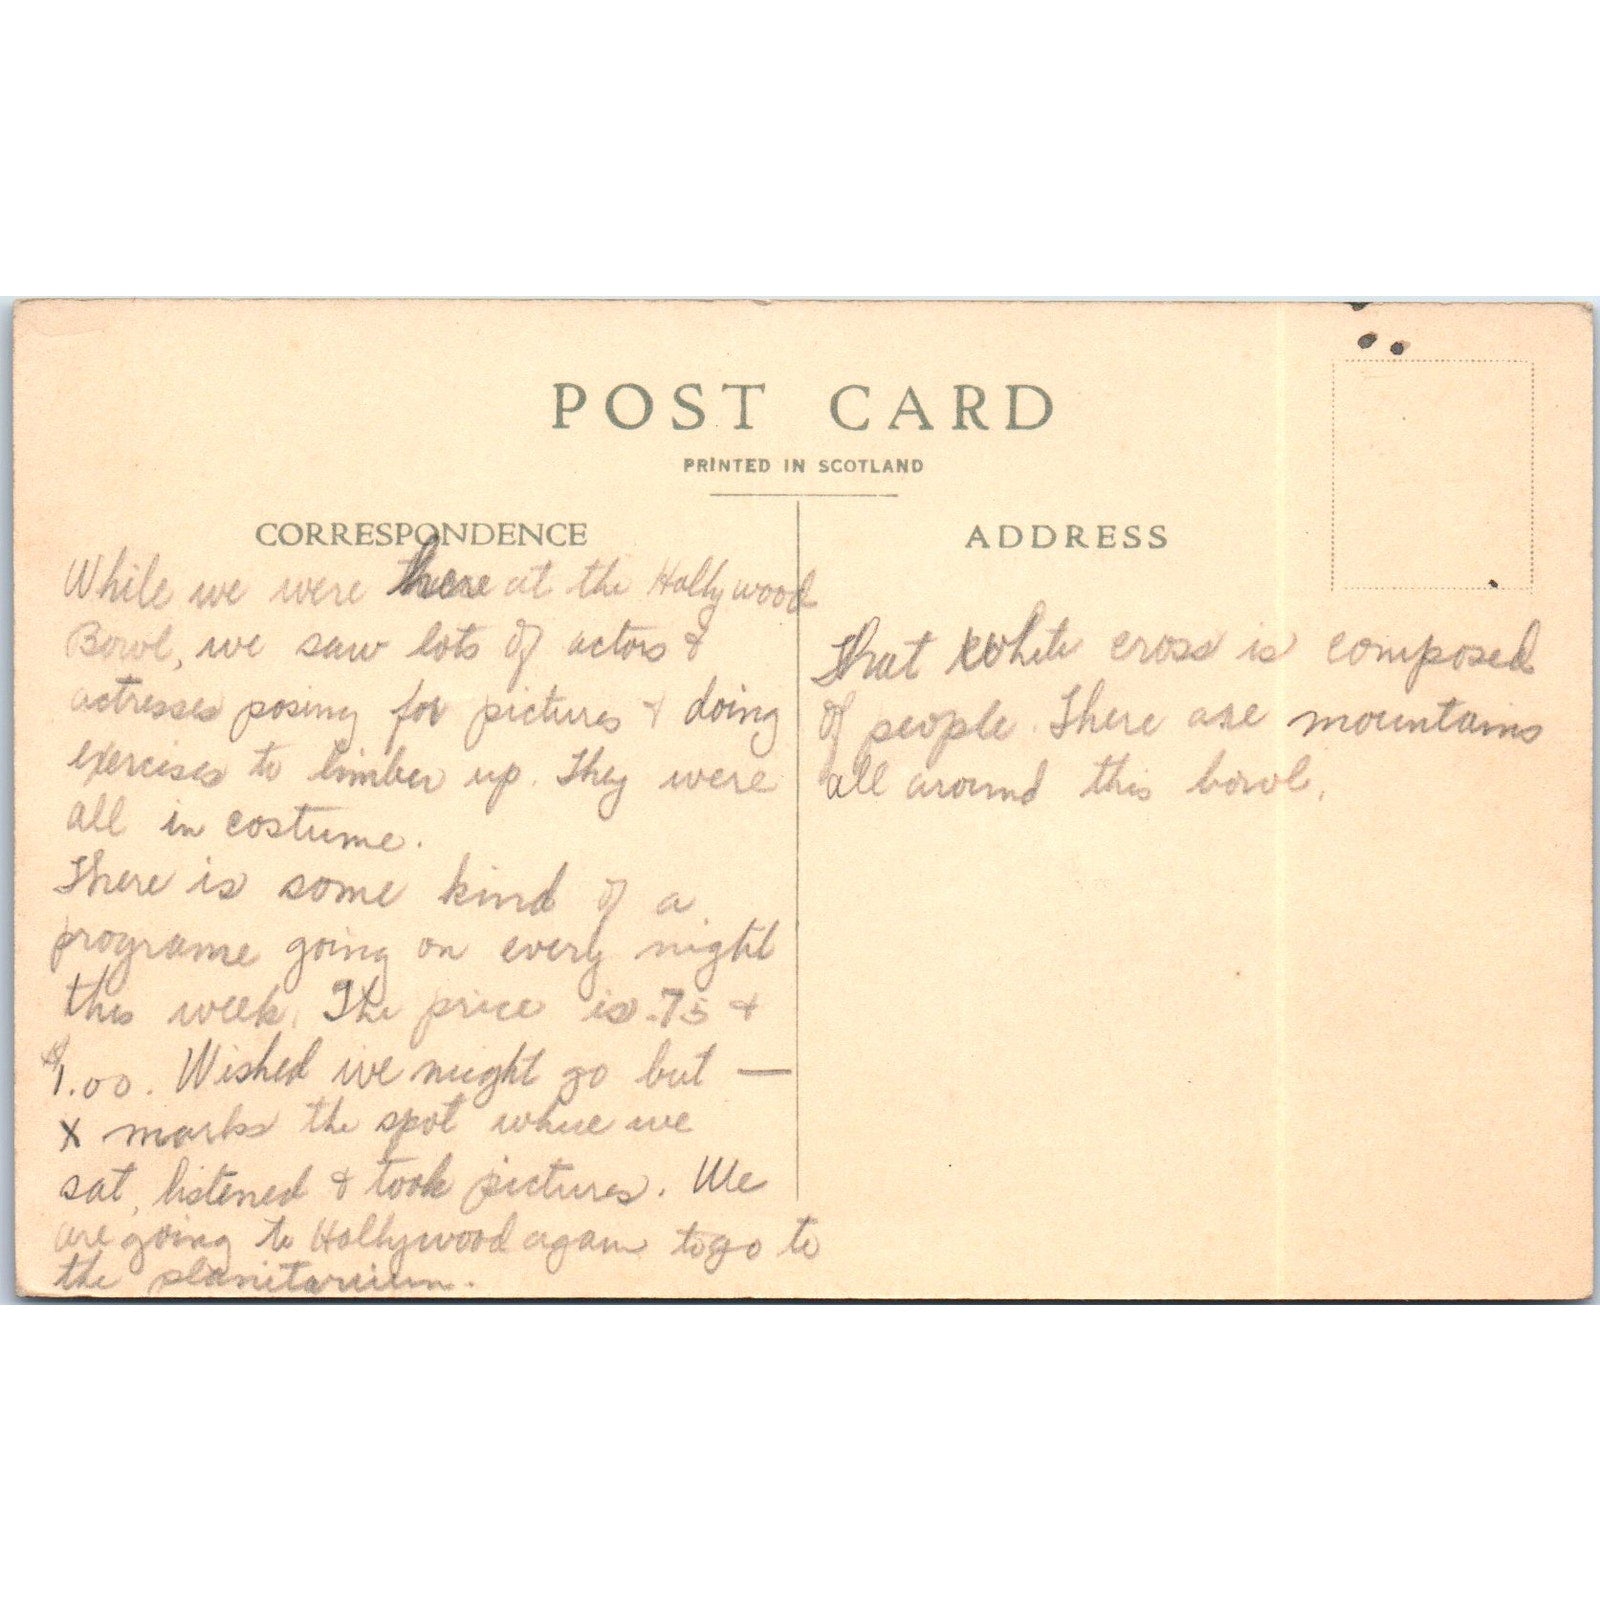 POST CARD
PRINTED IN SCOTLAND
CORRESPONDENCE
While we were there at the Hollywood
Bowl, we saw lots of actors &
actresses posing for pictures & doing
exercises to limber up. They were
all in costume.
There is some kind of a
programe going on every night
this week. The price is .75 &
$1.00. Wished we might go but —
X marks the spot where we
sat, listened & took pictures. We
are going to Hollywood again to go to
the planitarium.
ADDRESS
That white cross is composed
of people. There are mountains
all around this bowl.